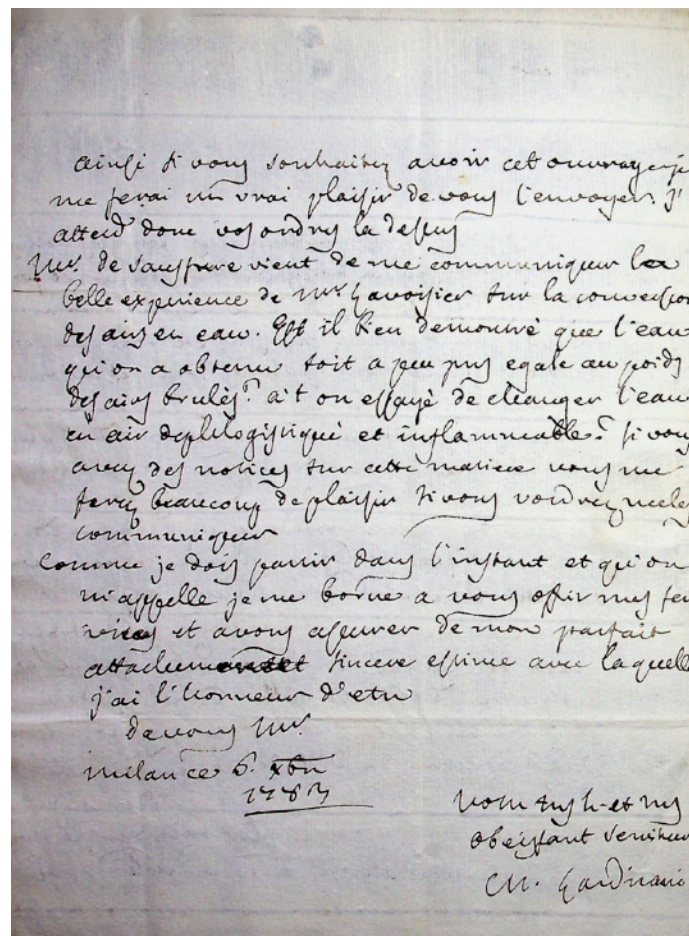 ainsi si vous souhaitez avoir cet ouvrage je
me ferai un vrai plaisir de vous l'envoyer. j'
attend donc vos ordres la desus
Mr. de Saussure vient de me communiquer la
belle experience de Mr. Lavoisier sur la conversion
des airs en eau. Est il bien demontré que l'eau
qu'on a obtenu soit a peu pres egale au poids
des airs brulés? a't on essayé de changer l'eau
en air dephlogistiqué et inflammable? si vous
avez des notices sur cette matiere vous me
ferez beaucoup de plaisir si vous voudrez me les
communiquer
Comme je dois partir dans l'instant et qu'on
m'appelle je me borne a vous offrir mes ser
vices et a vous assurer de mon parfait
attachement et sincere estime avec laquelle
j'ai l'honneur d'etre
de vous Mr.
milan ce 6. xbre
1783
votre tres h. et tres
obeissant serviteur